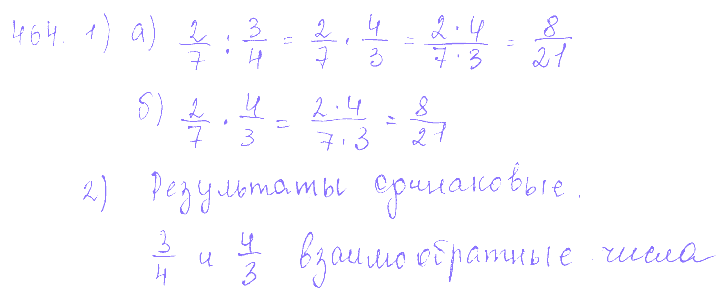 464. 1) а) 2/7 : 3/4 = 2/7 · 4/3 = 2·4/7·3 = 8/21
б) 2/7 · 4/3 = 2·4/7·3 = 8/21
2) Результаты одинаковые.
3/4 и 4/3 взаимообратные числа